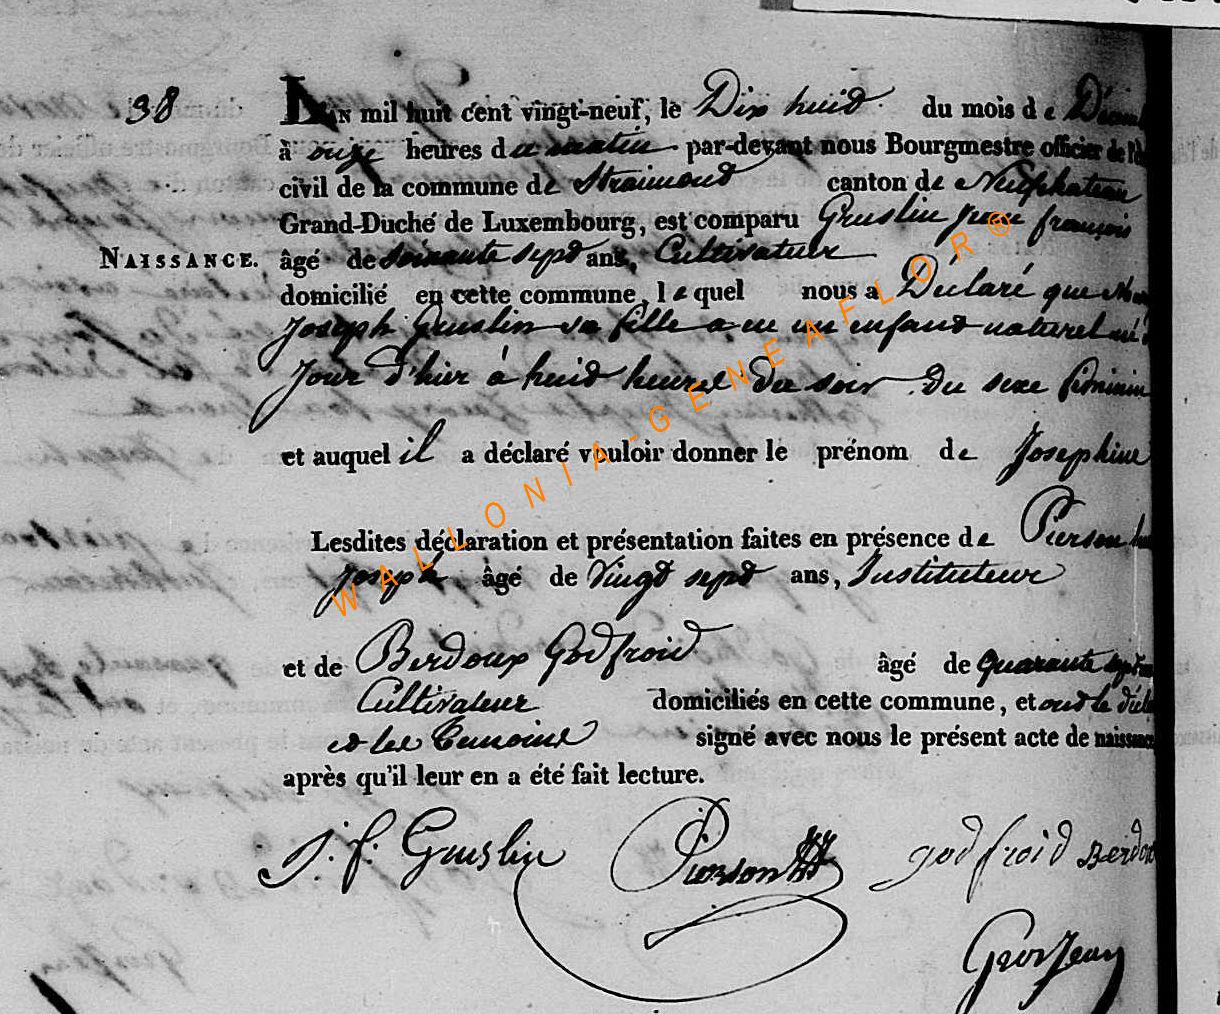 38
L'AN mil huit cent vingt-neuf, le Dix huid du mois de Décem
à onze heures du matin par-devant nous Bourgmestre officier de l'é
civil de la commune de Straimond canton de Neufchateau
Grand-Duché de Luxembourg, est comparu Gruslin jean françois
NAISSANCE.
âgé de soixante sept ans, Cultivateur
domicilié en cette commune, lequel nous a Déclaré que
Joseph Gruslin sa fille a eu un enfant naturel né
Jour d'hier à huid heures du soir Du sexe feminin
et auquel il a déclaré vouloir donner le prénom de Josephine
Lesdites déclaration et présentation faites en présence de Pierson
joseph âgé de Vingt sept ans, Instituteur
et de Berdoux Godfroid âgé de quarante sept
Cultivateur domiciliés en cette commune, et ont le décla
et les temoins signé avec nous le présent acte de naissance
après qu'il leur en a été fait lecture.
J. f. Gruslin Pierson godfroid Berdou
GrosJean
WALLONIA-GENEAFLOR®